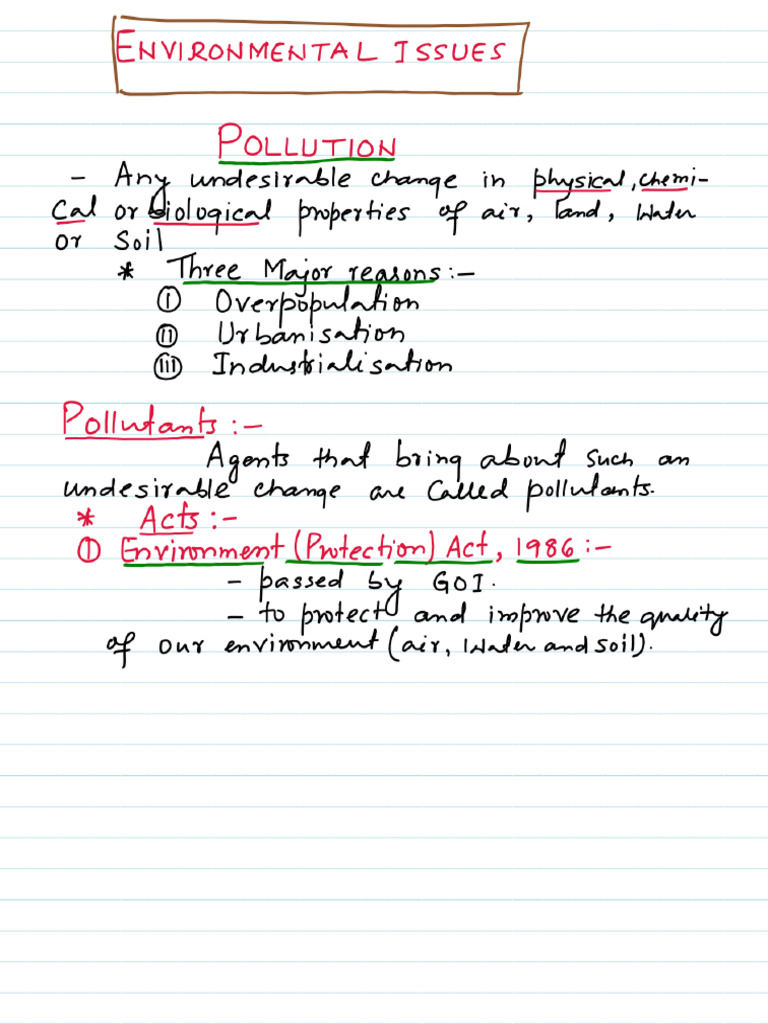 ENVIRONMENTAL ISSUES
POLLUTION
- Any undesirable change in physical, chemi-
cal or biological properties of air, land, water
or Soil
* Three Major reasons:-
(i) Overpopulation
(ii) Urbanisation
(iii) Industrialisation
Pollutants:-
Agents that bring about such an
undesirable change are called pollutants.
* Acts:-
① Environment (Protection) Act, 1986:-
- passed by GOI.
- to protect and improve the quality
of our environment (air, water and soil).